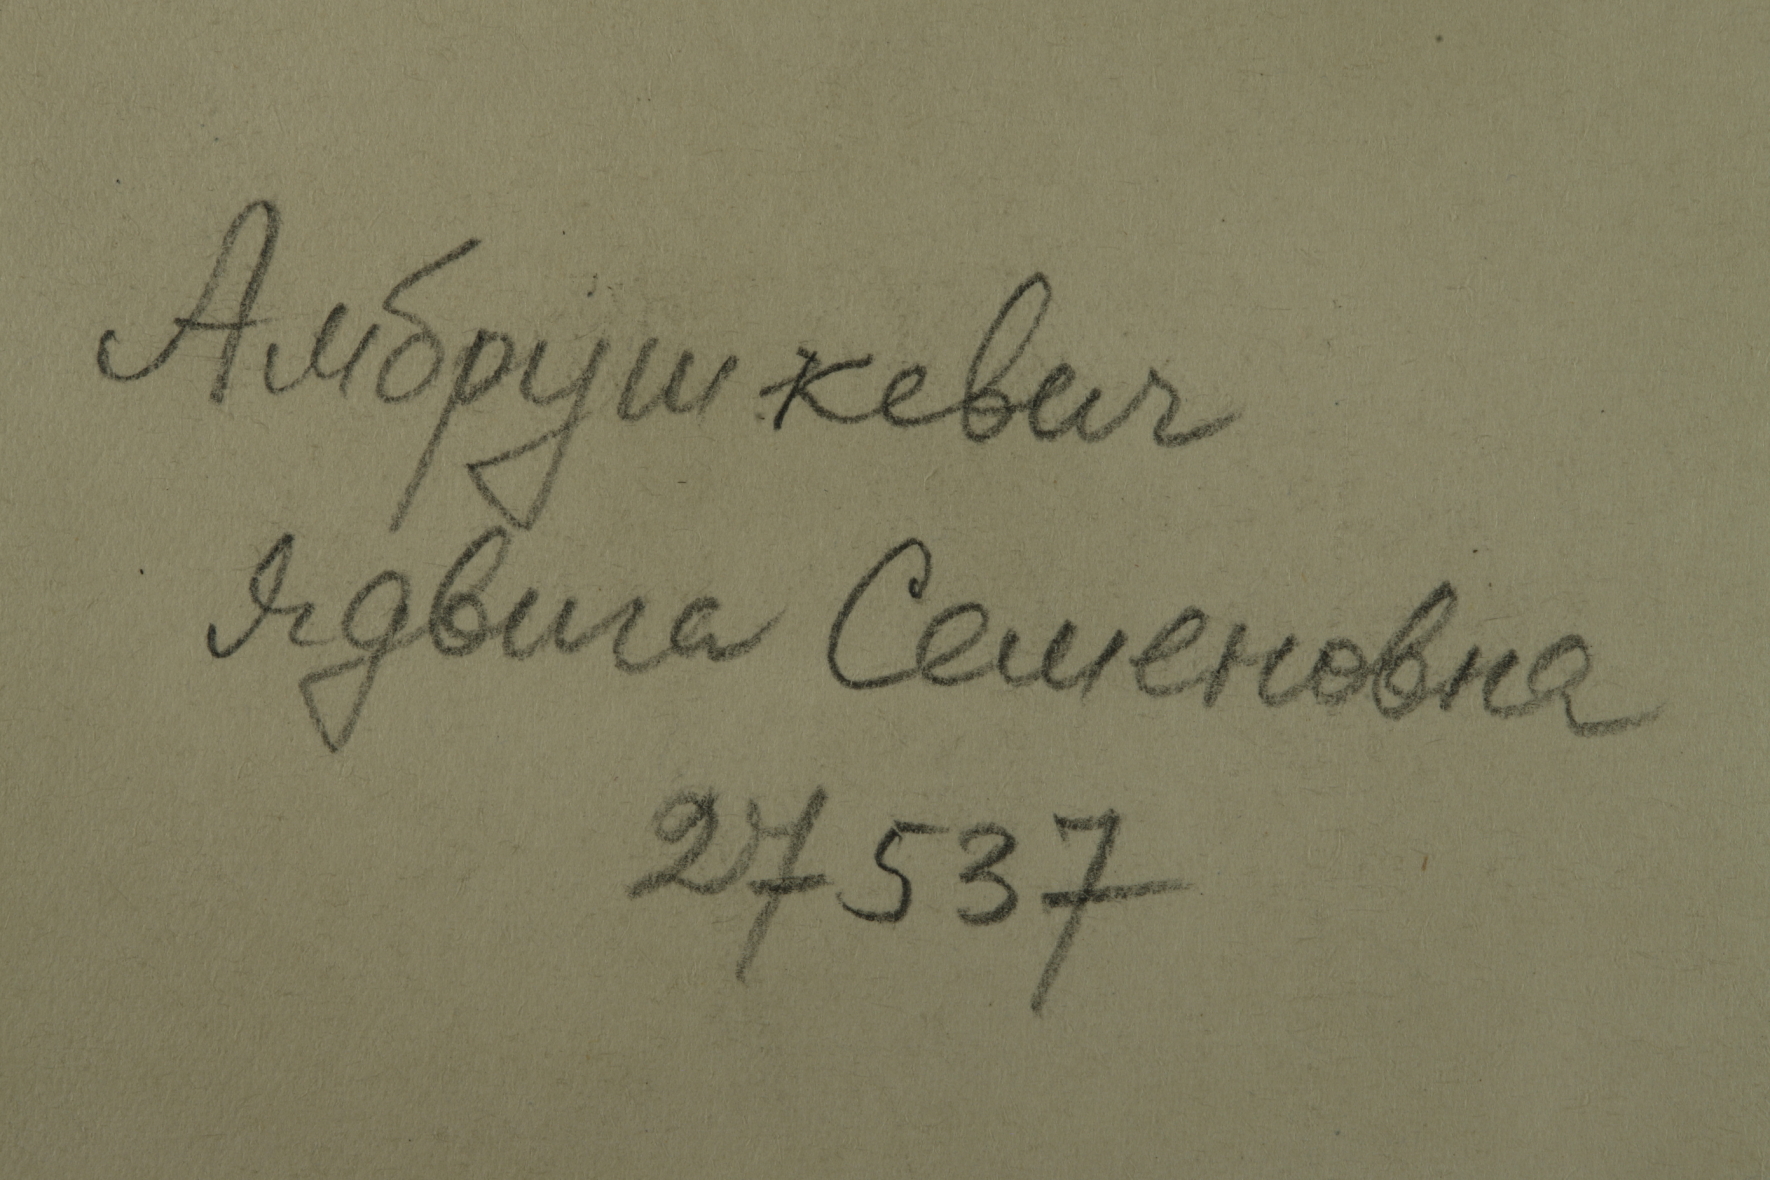 Амбрушкевич
Ядвига Семеновна
27537